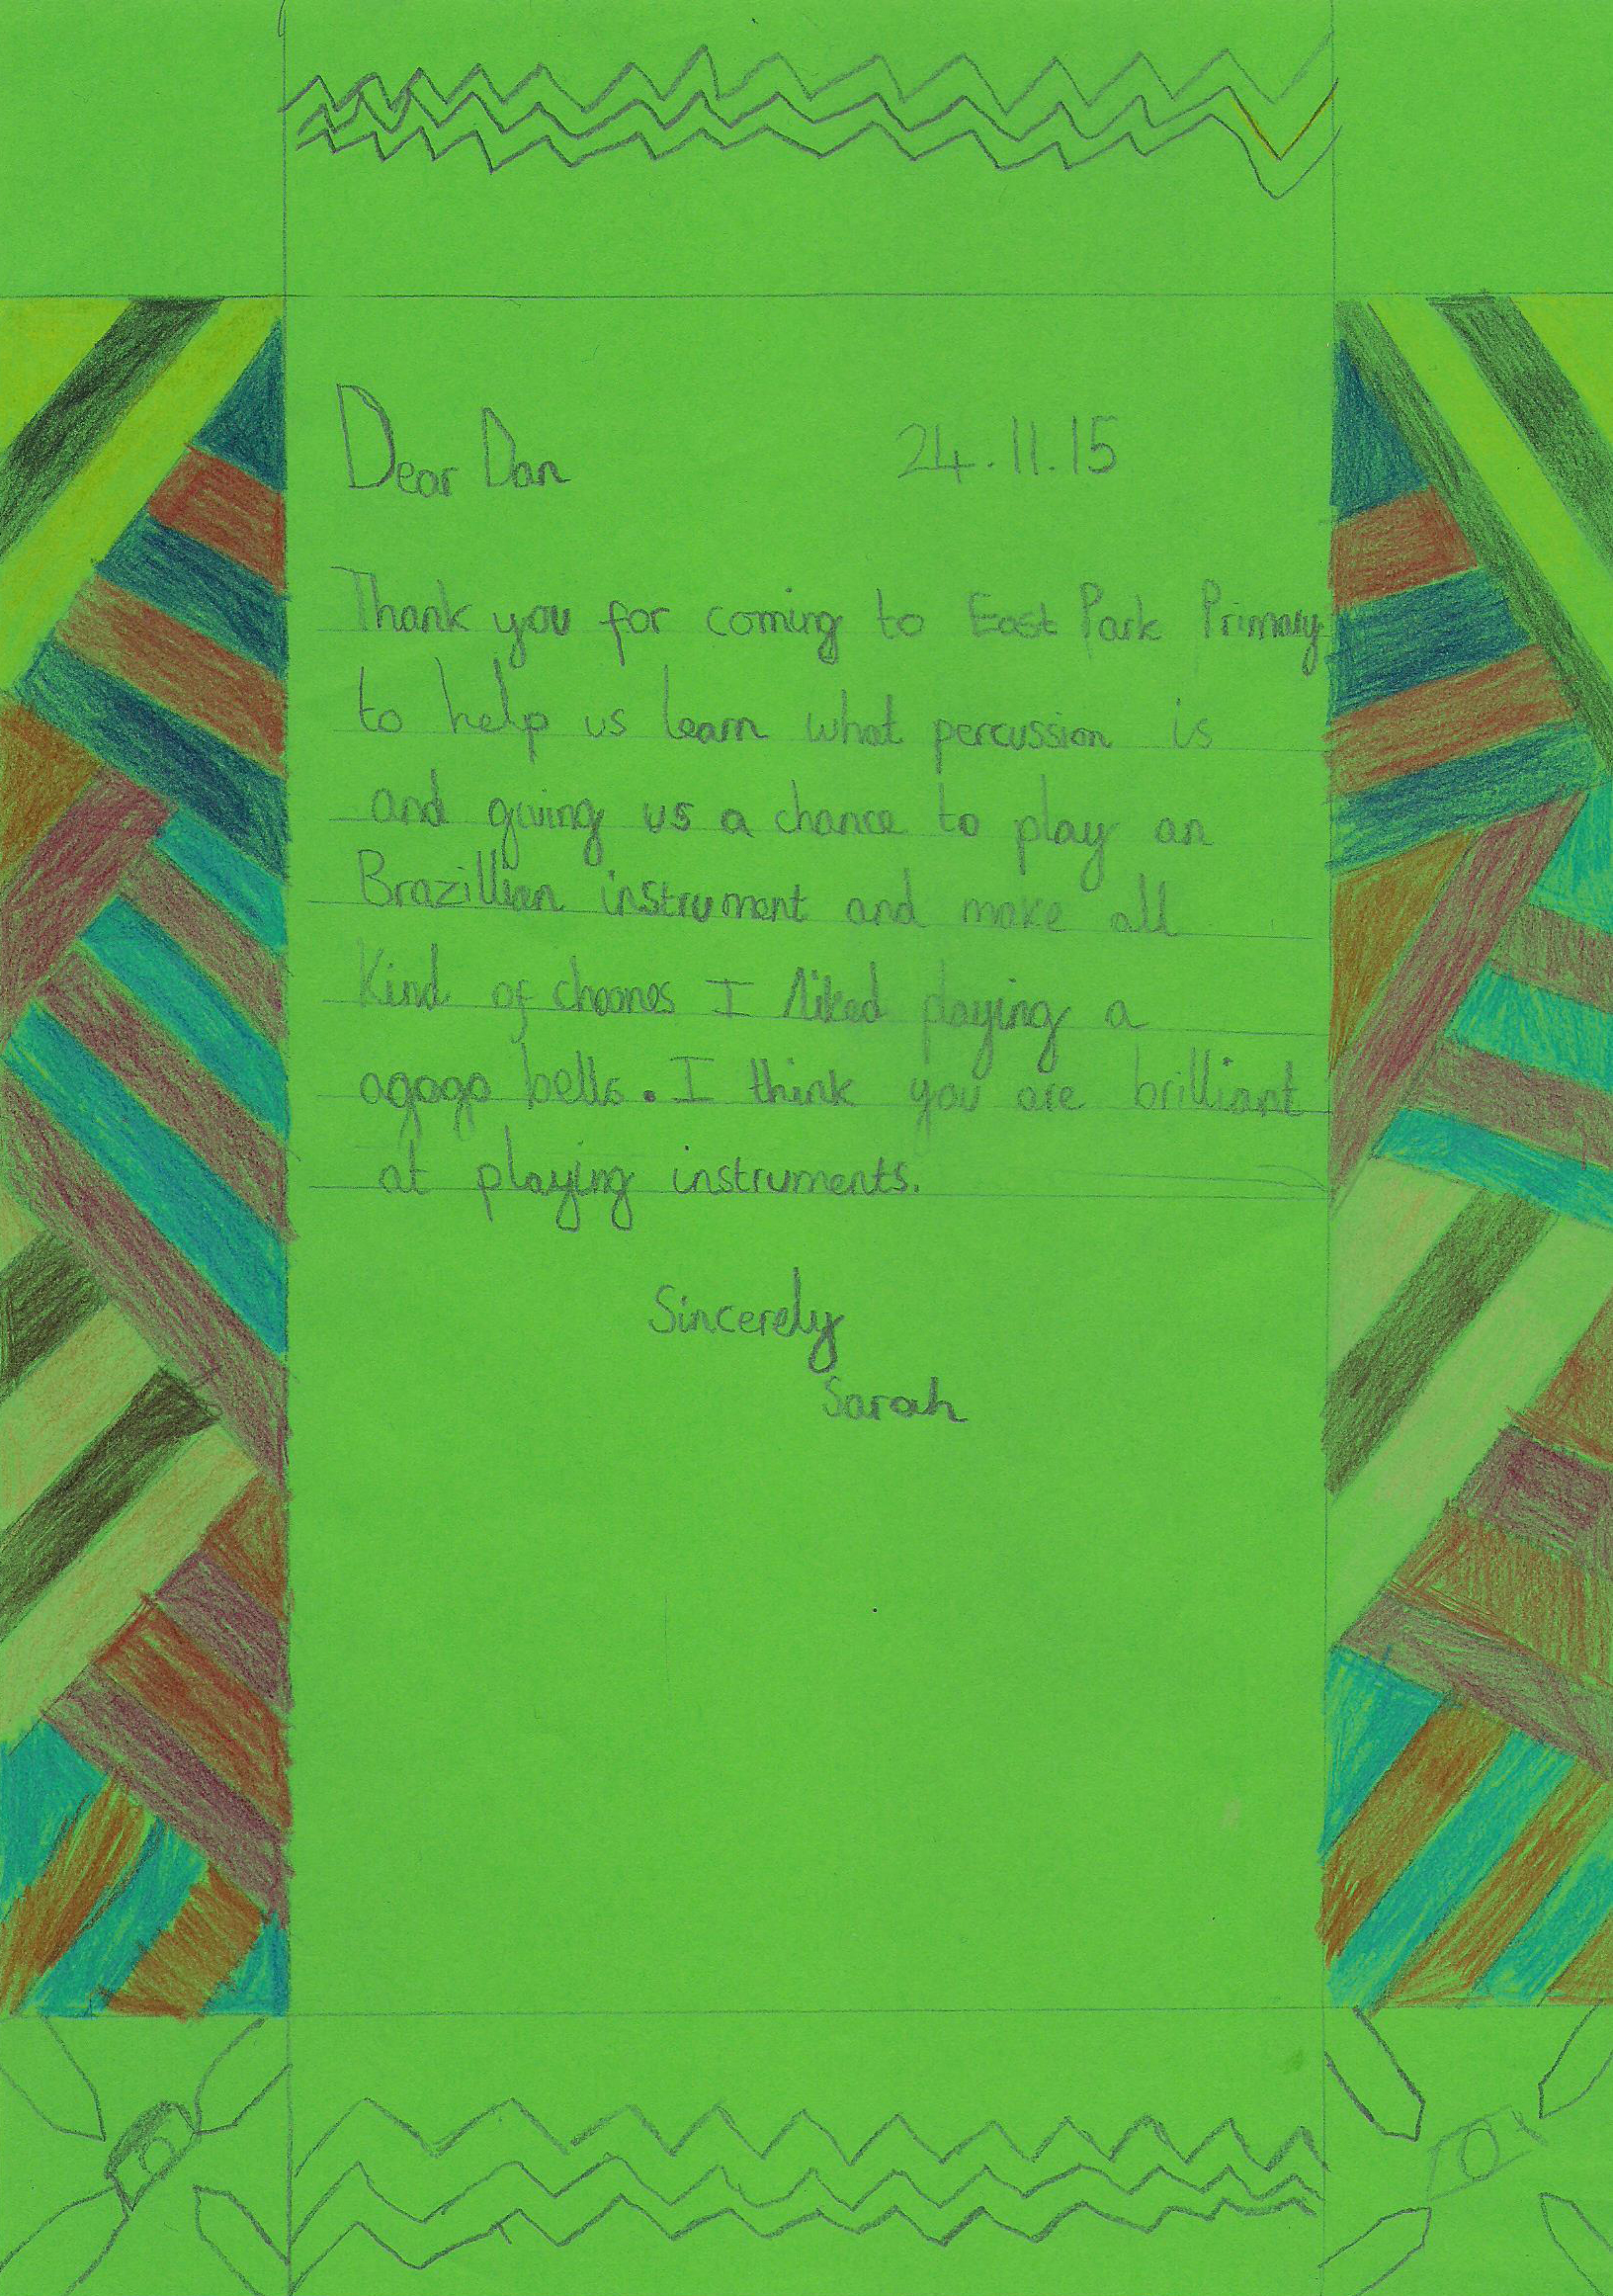 Dear Dan 24.11.15
Thank you for coming to East Park Primary
to help us learn what percussion is
and giving us a chance to play an
Brazillian instrument and make all
Kind of choones I liked playing a
agogo bells. I think you are brilliant
at playing instruments.
Sincerely
Sarah